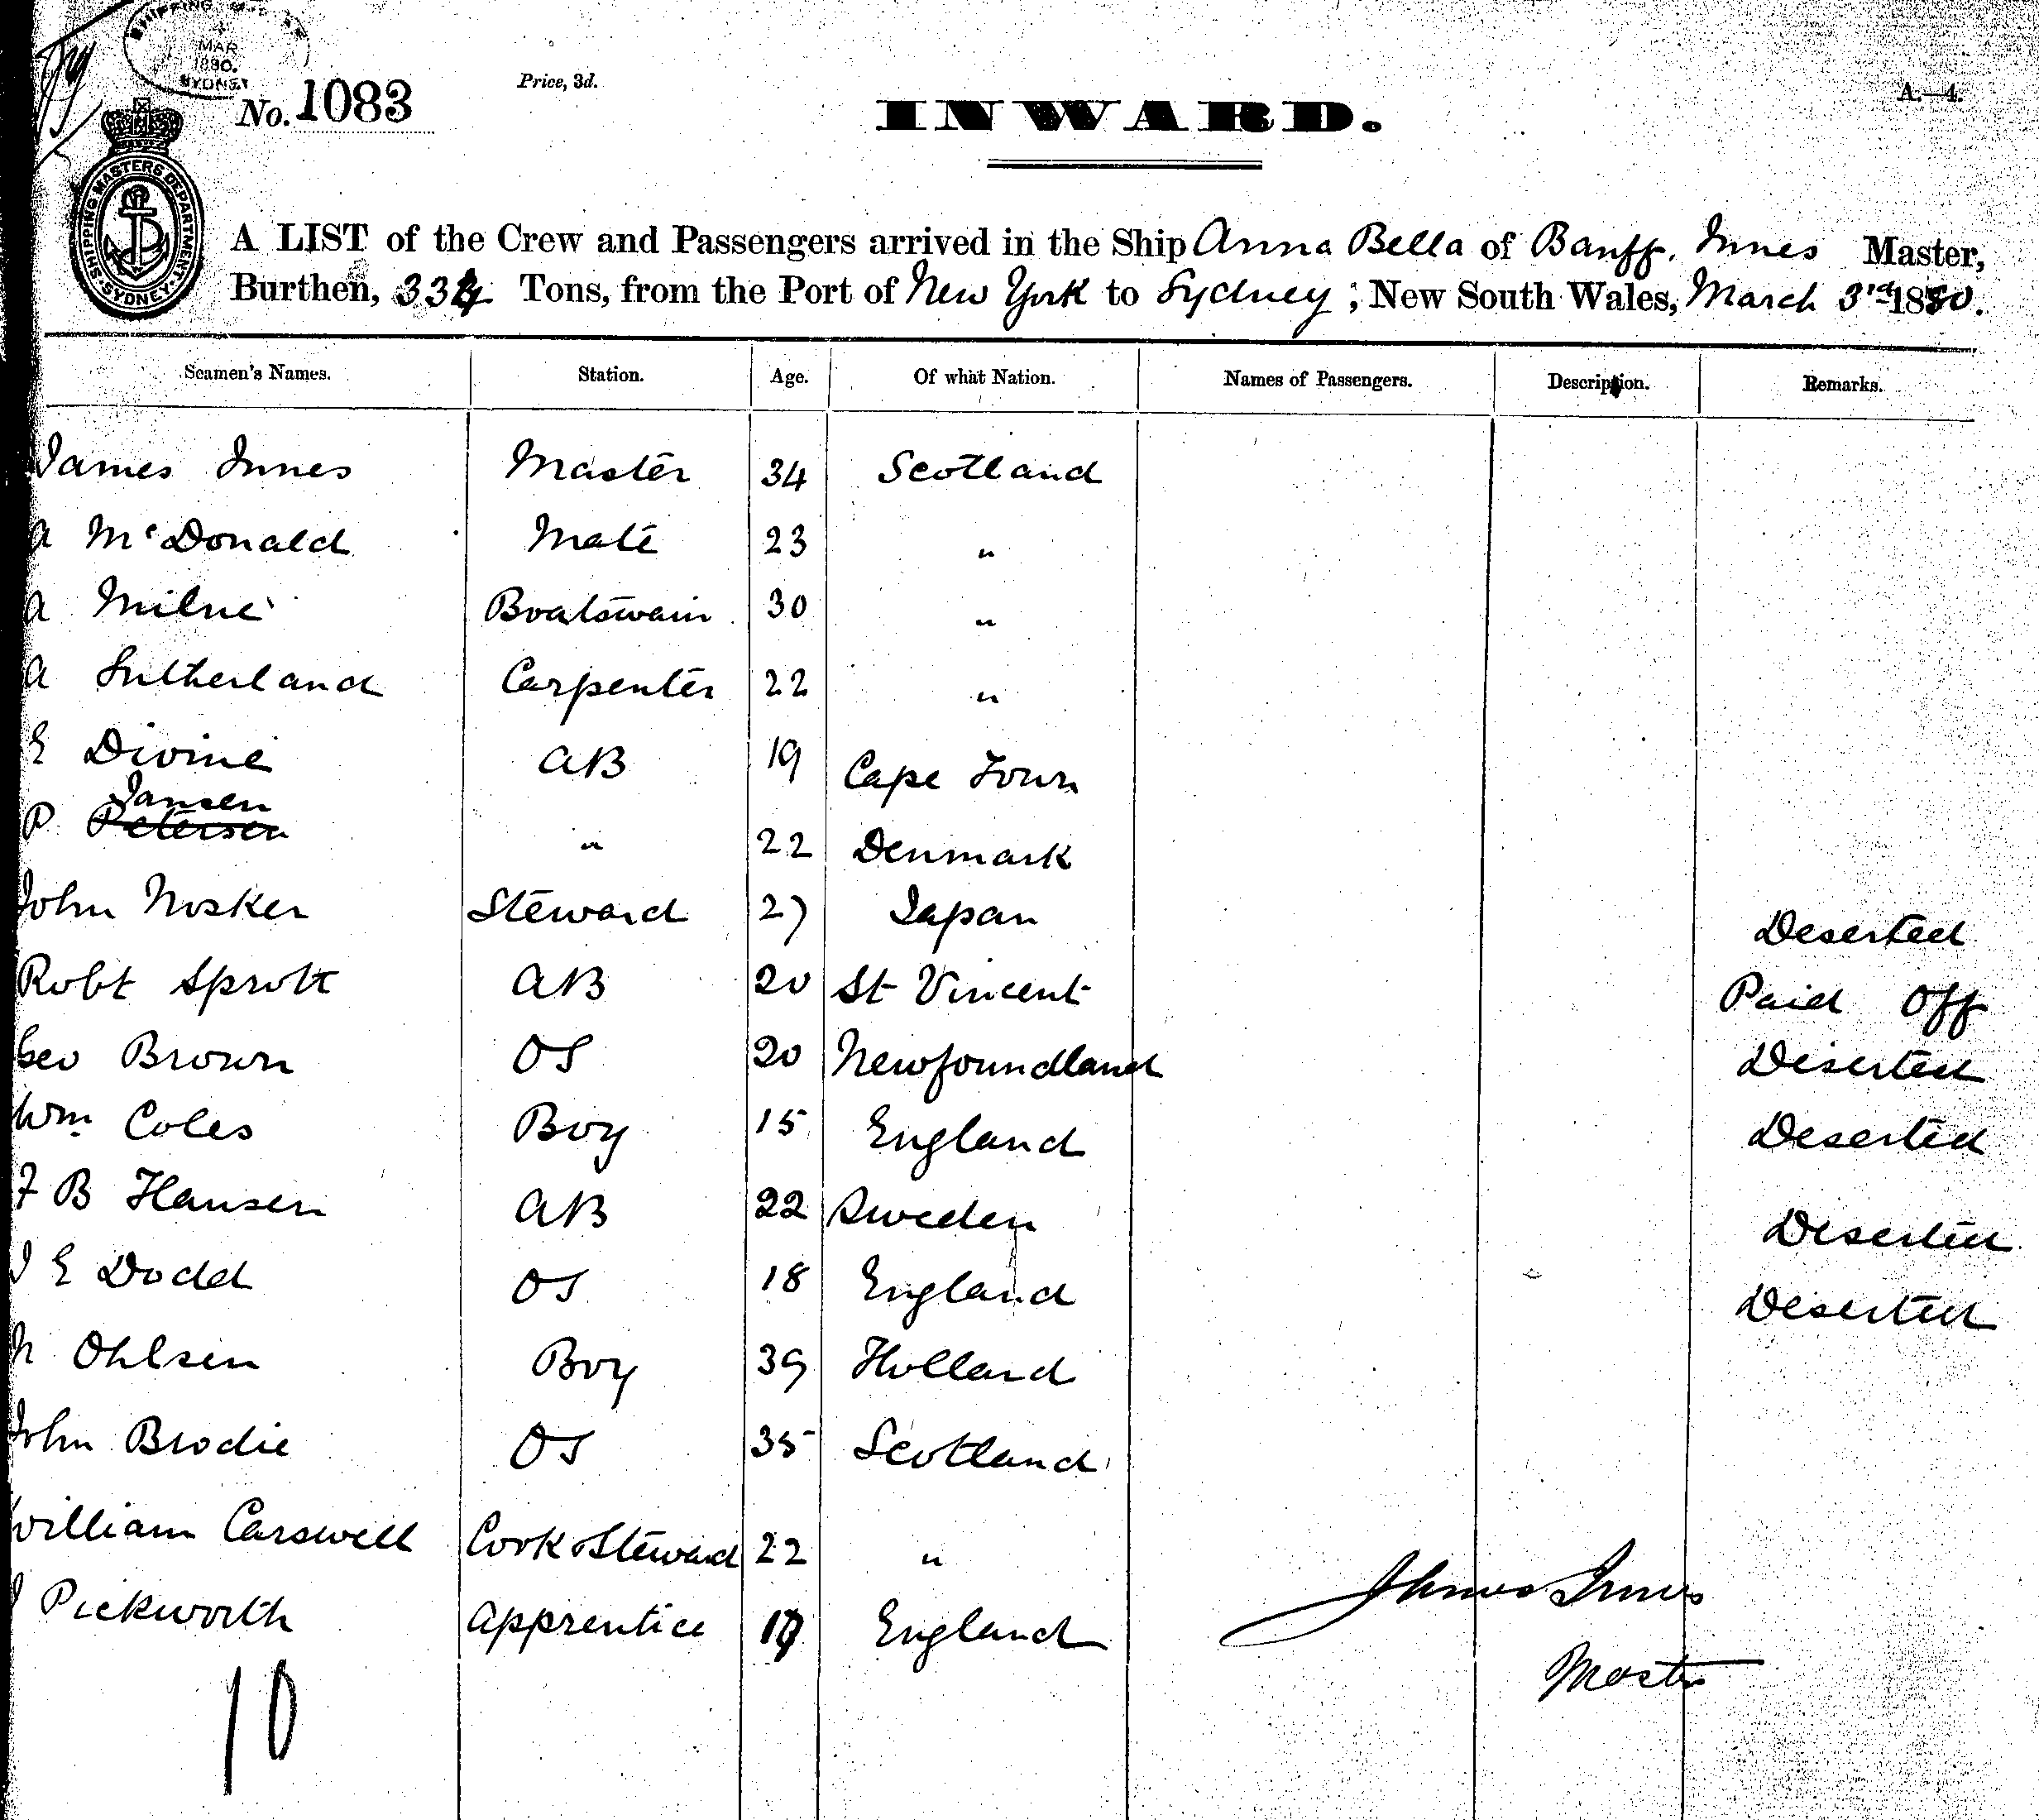 SHIPPING
MAR
1880.
SYDNEY
No. 1083
Price, 3d.
INWARD.
A.—4.
SHIPPING MASTERS DEPARTMENT
SYDNEY
A LIST of the Crew and Passengers arrived in the Ship Anna Bella of Banff, Innes Master,
Burthen, 334 Tons, from the Port of New York to Sydney; New South Wales, March 3rd 1880.
Seamen's Names. Station. Age. Of what Nation. Names of Passengers. Description. Remarks.
James Innes Master 34 Scotland
A McDonald Mate 23 "
A Milne Boatswain 30 "
A Sutherland Carpenter 22 "
E Divine AB 19 Cape Town
Jansen
P Petersen " 22 Denmark
John Nosker Steward 27 Japan Deserted
Robt Sprott AB 20 St Vincent Paid Off
Geo Brown OS 20 Newfoundland Deserted
Wm Coles Boy 15 England Deserted
F B Hansen AB 22 Sweden Deserted
J E Dodd OS 18 England Deserted
N Ohlsen Boy 39 Holland
John Brodie OS 35 Scotland
William Carswell Cook & Steward 22 "
J Pickworth Apprentice England
James Innes
Master
10